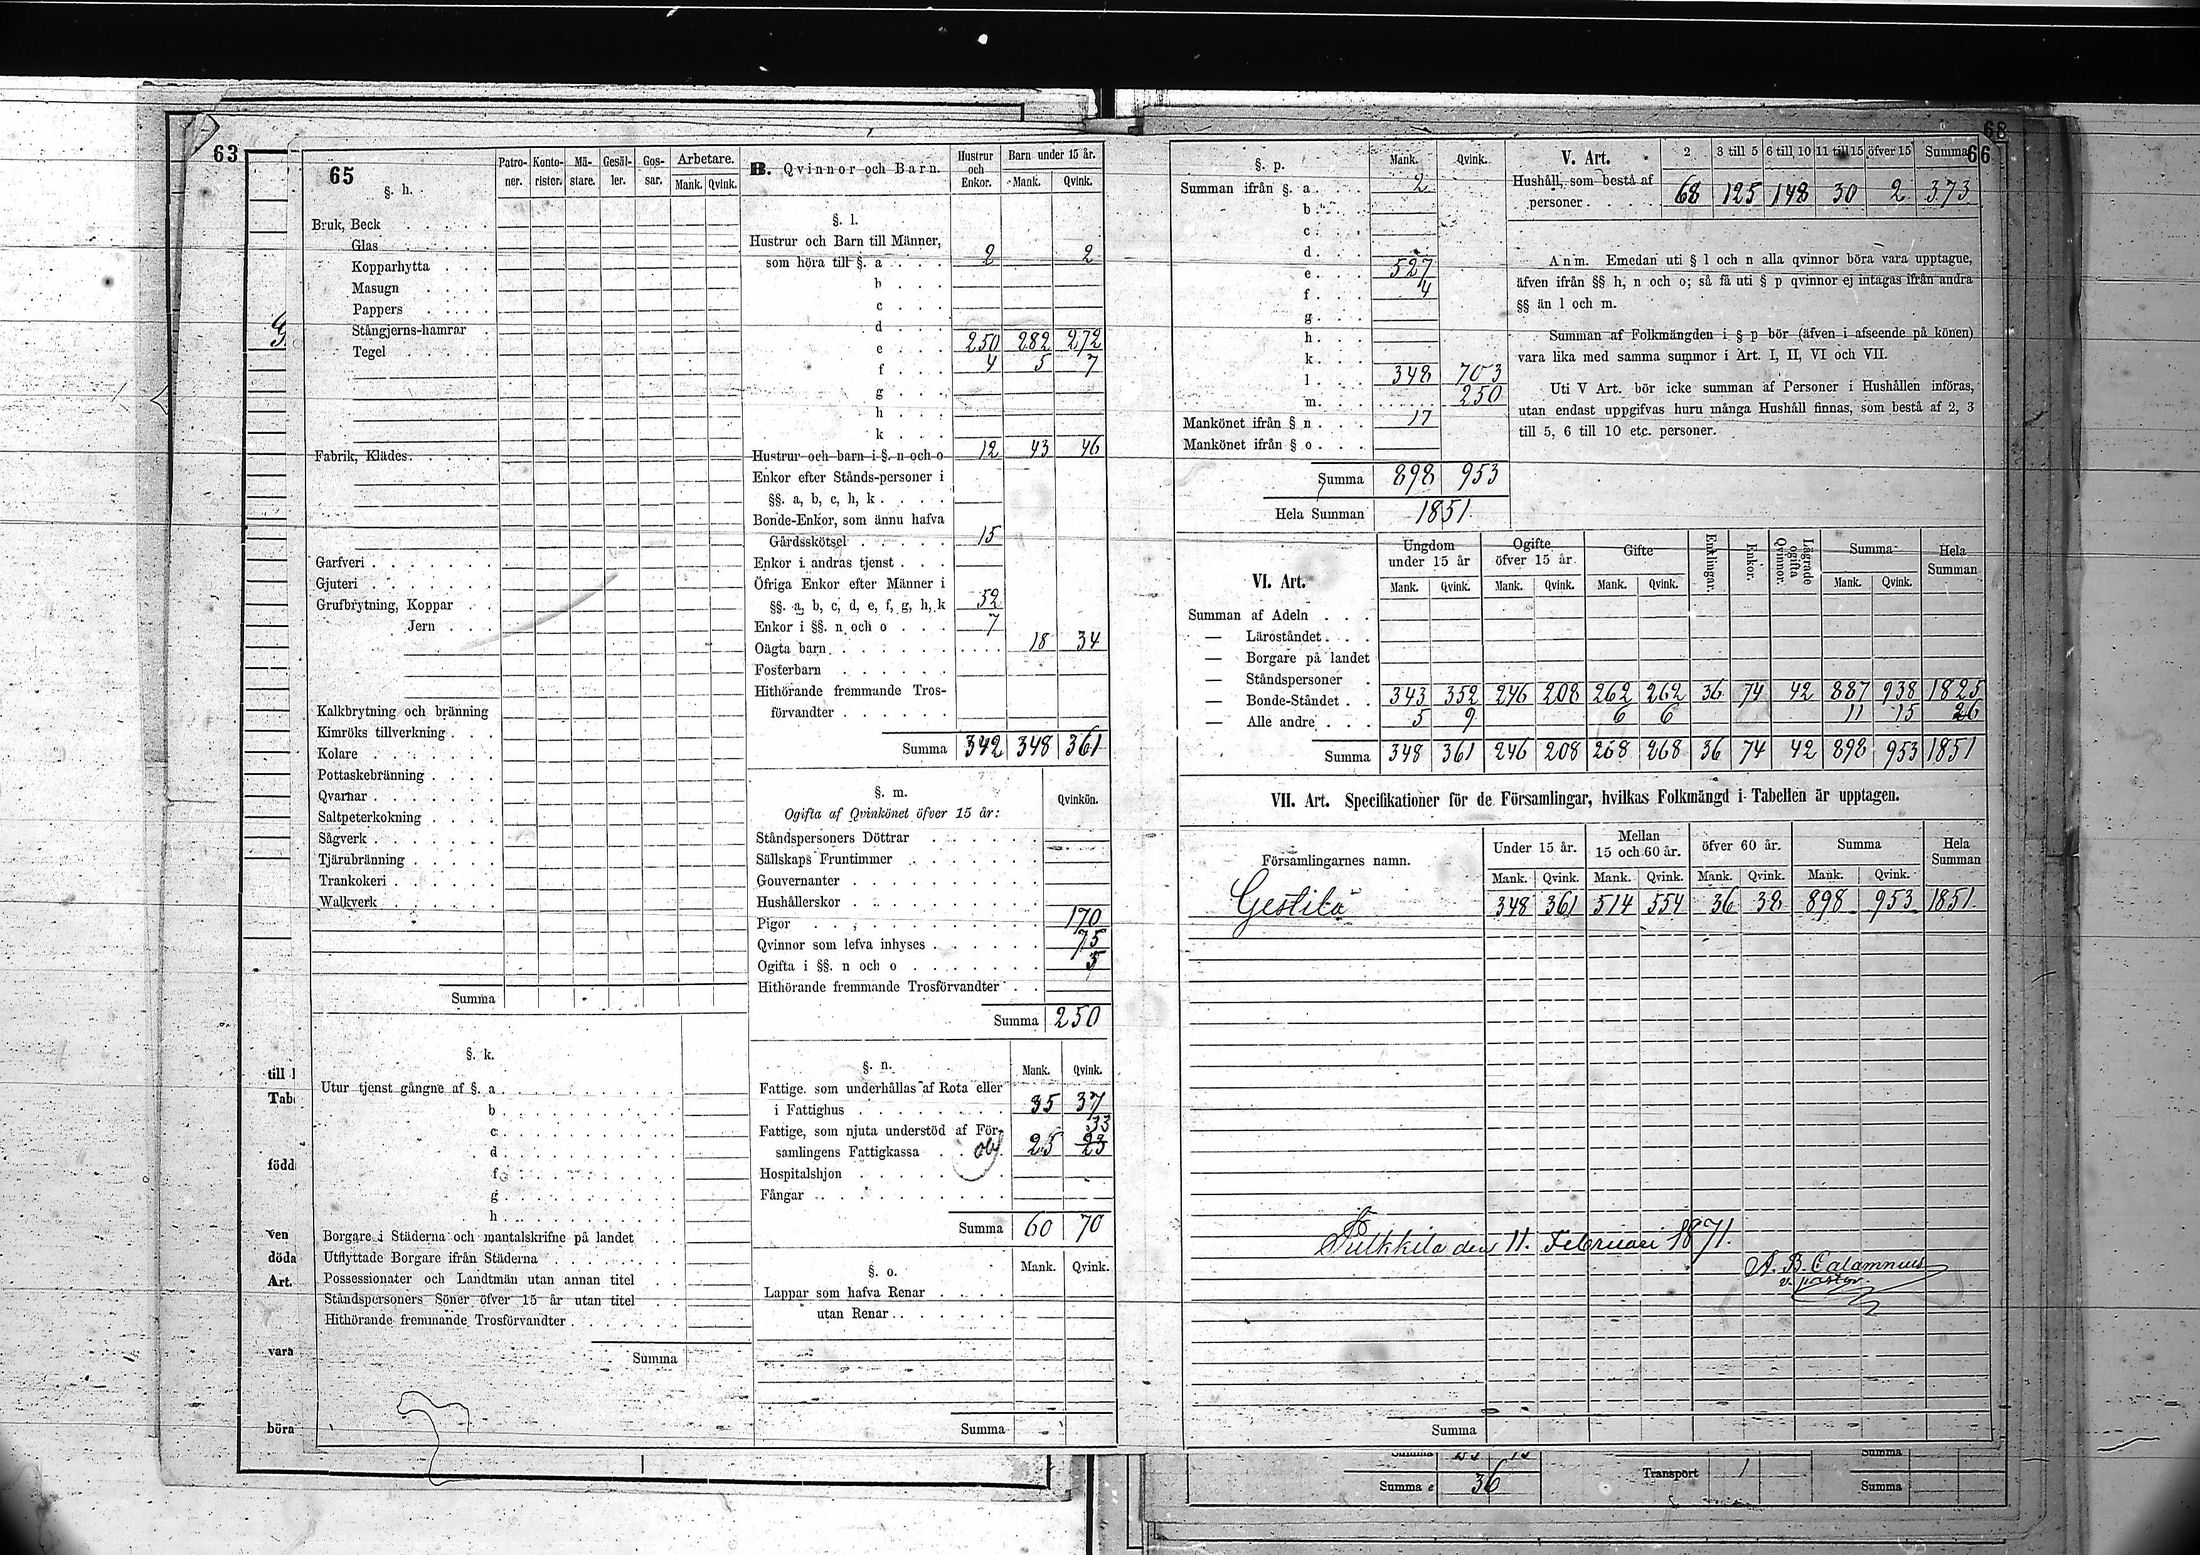 63
65
§. h.
Patroner. Kontorister. Mästare. Gesäller. Gossar. Arbetare. Mank. Qvink.
Bruk, Beck
Glas
Kopparhytta
Masugn
Pappers
Stångjerns-hamrar
Tegel
Fabrik, Klädes
Garfveri
Gjuteri
Grufbrytning, Koppar
Jern
Kalkbrytning och bränning
Kimröks tillverkning
Kolare
Pottaskebränning
Qvarnar
Saltpeterkokning
Sågverk
Tjärubränning
Trankokeri
Walkverk
Summa
§. k.
Utur tjenst gångne af §. a
b
c
d
f
g
h
Borgare i Städerna och mantalskrifne på landet
Utflyttade Borgare ifrån Städerna
Possessionater och Landtmän utan annan titel
Ståndspersoners Söner öfver 15 år utan titel
Hithörande fremmande Trosförvandter
Summa
till
född
ven
döda
Art.
vara
böra
B. Qvinnor och Barn. Hustrur och Enkor. Barn under 15 år. Mank. Qvink.
§. l.
Hustrur och Barn till Männer,
som höra till §. a 2 2
b
c
d
e 250 282 272
f 4 5 7
g
h
k
Hustrur och barn i §. n och o 12 43 46
Enkor efter Stånds-personer i
§§. a, b, c, h, k
Bonde-Enkor, som ännu hafva
Gårdsskötsel 15
Enkor i andras tjenst
Öfriga Enkor efter Männer i
§§. a, b, c, d, e, f, g, h, k 52
Enkor i §§. n och o 7
Oägta barn 18 34
Fosterbarn
Hithörande fremmande Trosförvandter
Summa 342 348 361
§. m.
Ogifta af Qvinkönet öfver 15 år: Qvinkön.
Ståndspersoners Döttrar
Sällskaps Fruntimmer
Gouvernanter
Hushållerskor
Pigor 170
Qvinnor som lefva inhyses 75
Ogifta i §§. n och o 5
Hithörande fremmande Trosförvandter
Summa 250
§. n. Mank. Qvink.
Fattige som underhållas af Rota eller
i Fattighus 35 37
33
Fattige, som njuta understöd af Församlingens Fattigkassa 25 23
Hospitalshjon
Fångar
Summa 60 70
§. o. Mank. Qvink.
Lappar som hafva Renar
utan Renar
Summa
68
66
§. p. Mank. Qvink.
Summan ifrån §. a 2
b
c
d
e 527
f 4
g
h
k
l 348 703
m 250
Mankönet ifrån § n 17
Mankönet ifrån § o
Summa 898 953
Hela Summan 1851
V. Art. 2 3 till 5 6 till 10 11 till 15 öfver 15 Summa
Hushåll, som bestå af
personer 68 125 148 30 2 373
Anm. Emedan uti § l och n alla qvinnor böra vara upptagne,
äfven ifrån §§ h, n och o; så få uti § p qvinnor ej intagas ifrån andra
§§ än l och m.
Summan af Folkmängden i § p bör (äfven i afseende på könen)
vara lika med samma summor i Art. I, II, VI och VII.
Uti V Art. bör icke summan af Personer i Hushållen införas,
utan endast uppgifvas huru många Hushåll finnas, som bestå af 2, 3
till 5, 6 till 10 etc. personer.
VI. Art. Ungdom under 15 år Ogifte öfver 15 år Gifte Enklingar. Enkor. Lägrade ogifta Qvinnor. Summa Hela Summan
Mank. Qvink. Mank. Qvink. Mank. Qvink. Mank. Qvink.
Summan af Adeln
— Läroståndet
— Borgare på landet
— Ståndspersoner
— Bonde-Ståndet 343 352 246 208 262 262 36 74 42 887 938 1825
— Alle andre 5 9 6 6 11 15 26
Summa 348 361 246 208 268 268 36 74 42 898 953 1851
VII. Art. Specifikationer för de Församlingar, hvilkas Folkmängd i Tabellen är upptagen.
Församlingarnes namn. Under 15 år. Mellan 15 och 60 år. öfver 60 år. Summa Hela Summan
Mank. Qvink. Mank. Qvink. Mank. Qvink. Mank. Qvink.
Gestilä 348 361 514 554 36 38 898 953 1851
Pulkkila den 11. Februari 1871.
A. B. Calamnius
v. pastor.
Summa
Summa e 36 Transport 1 Summa